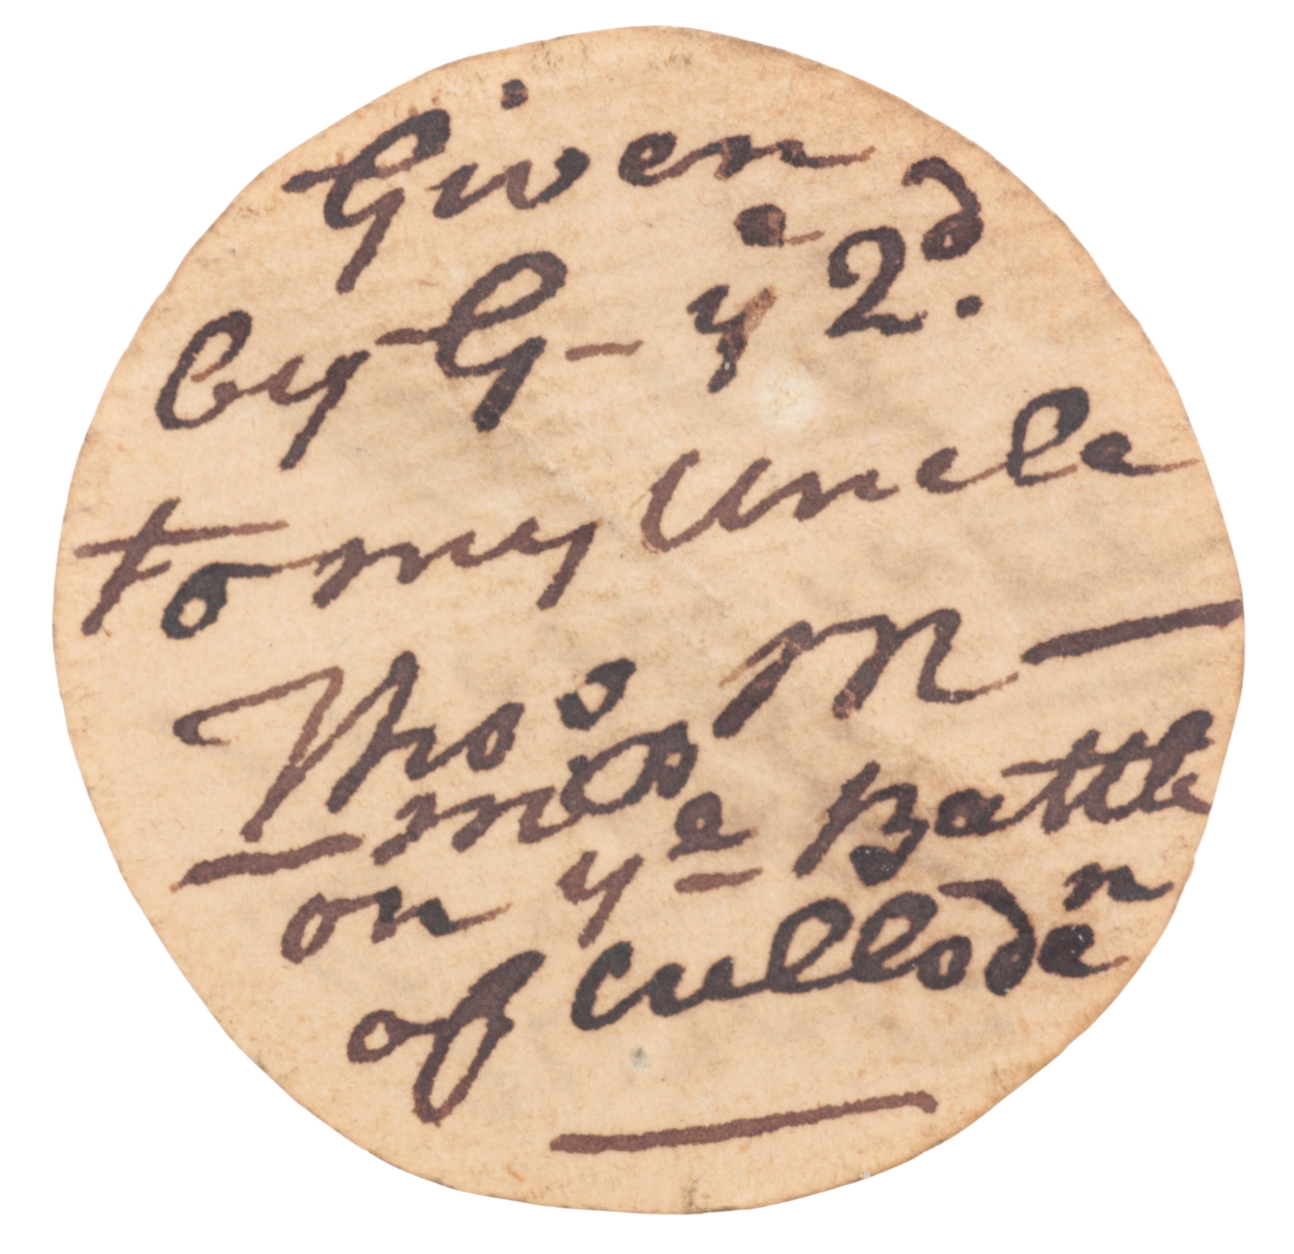 Given
by G— yͤ 2ᵈ.
to my Uncle
Thos M—
on yͤ Battle
of Culloden